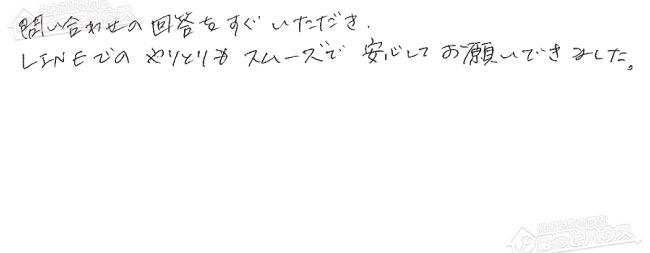 問い合わせの回答をすぐいただき、
LINEでのやりとりもスムーズで安心してお願いできました。